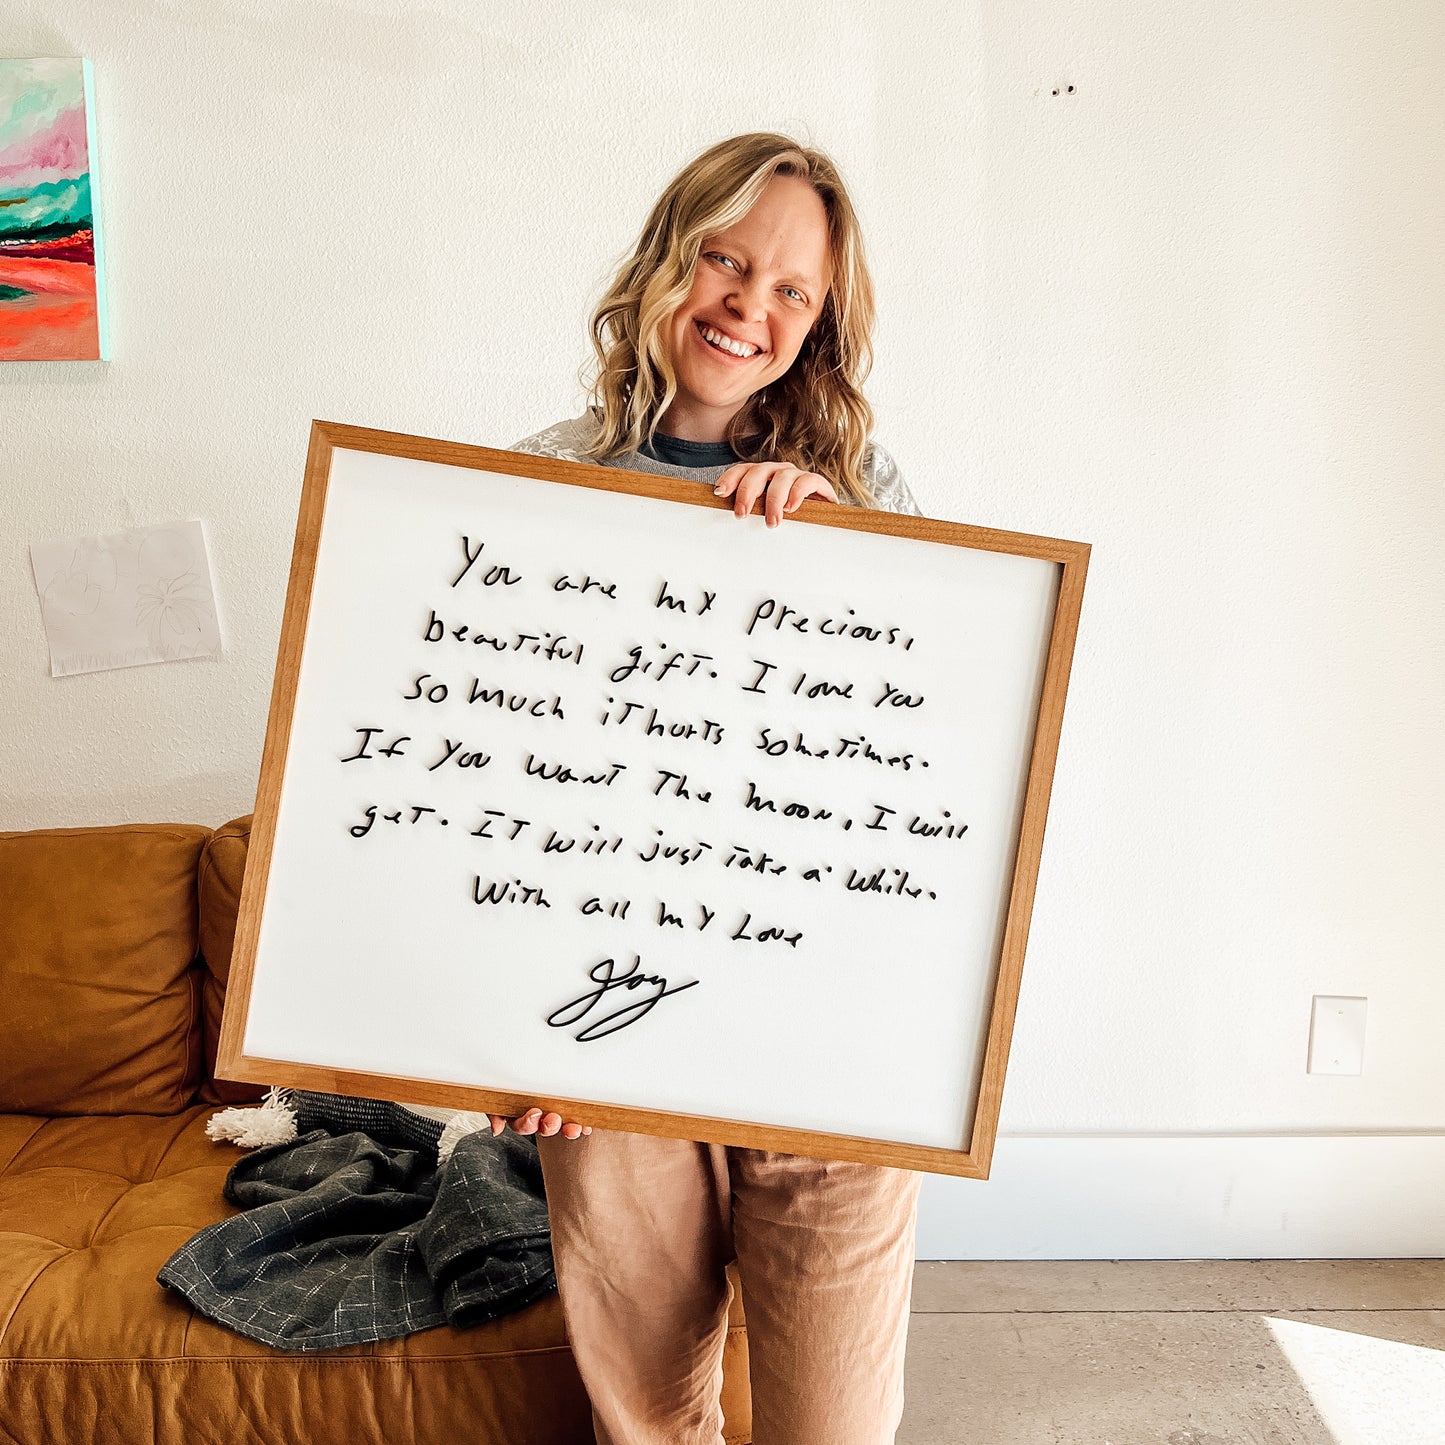 You are my precious,
beautiful gift. I love you
so much it hurts sometimes.
If you want the moon, I will
get. It will just take a while.
With all my Love
Joy